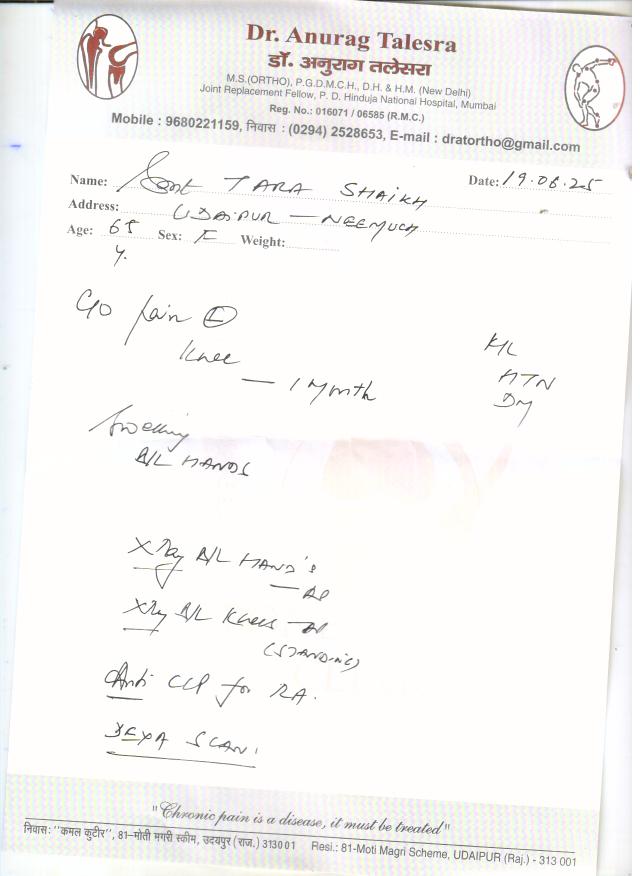 Dr. Anurag Talesra
डॉ. अनुराग तलेसरा
M.S.(ORTHO), P.G.D.M.C.H., D.H. & H.M. (New Delhi)
Joint Replacement Fellow, P. D. Hinduja National Hospital, Mumbai
Reg. No.: 016071 / 06585 (R.M.C.)
Mobile : 9680221159, निवास : (0294) 2528653, E-mail : dratortho@gmail.com
Name: Smt TARA SHAIKH Date: 19.08.25
Address: UDAIPUR – NEEMUCH
Age: 65 Sex: F Weight:
y.
C/o Pain
Knee
– 1 Month
HTN
DM
Swelling
B/L HANDS
X Ray B/L HAND's
– AP
X Ray B/L Knees – AP
(STANDING)
Anti CCP for RA.
DEXA SCAN.
"Chronic pain is a disease, it must be treated"
निवास: "कमल कुटीर", 81–मोती मगरी स्कीम, उदयपुर (राज.) 313001 Resi.: 81-Moti Magri Scheme, UDAIPUR (Raj.) - 313 001